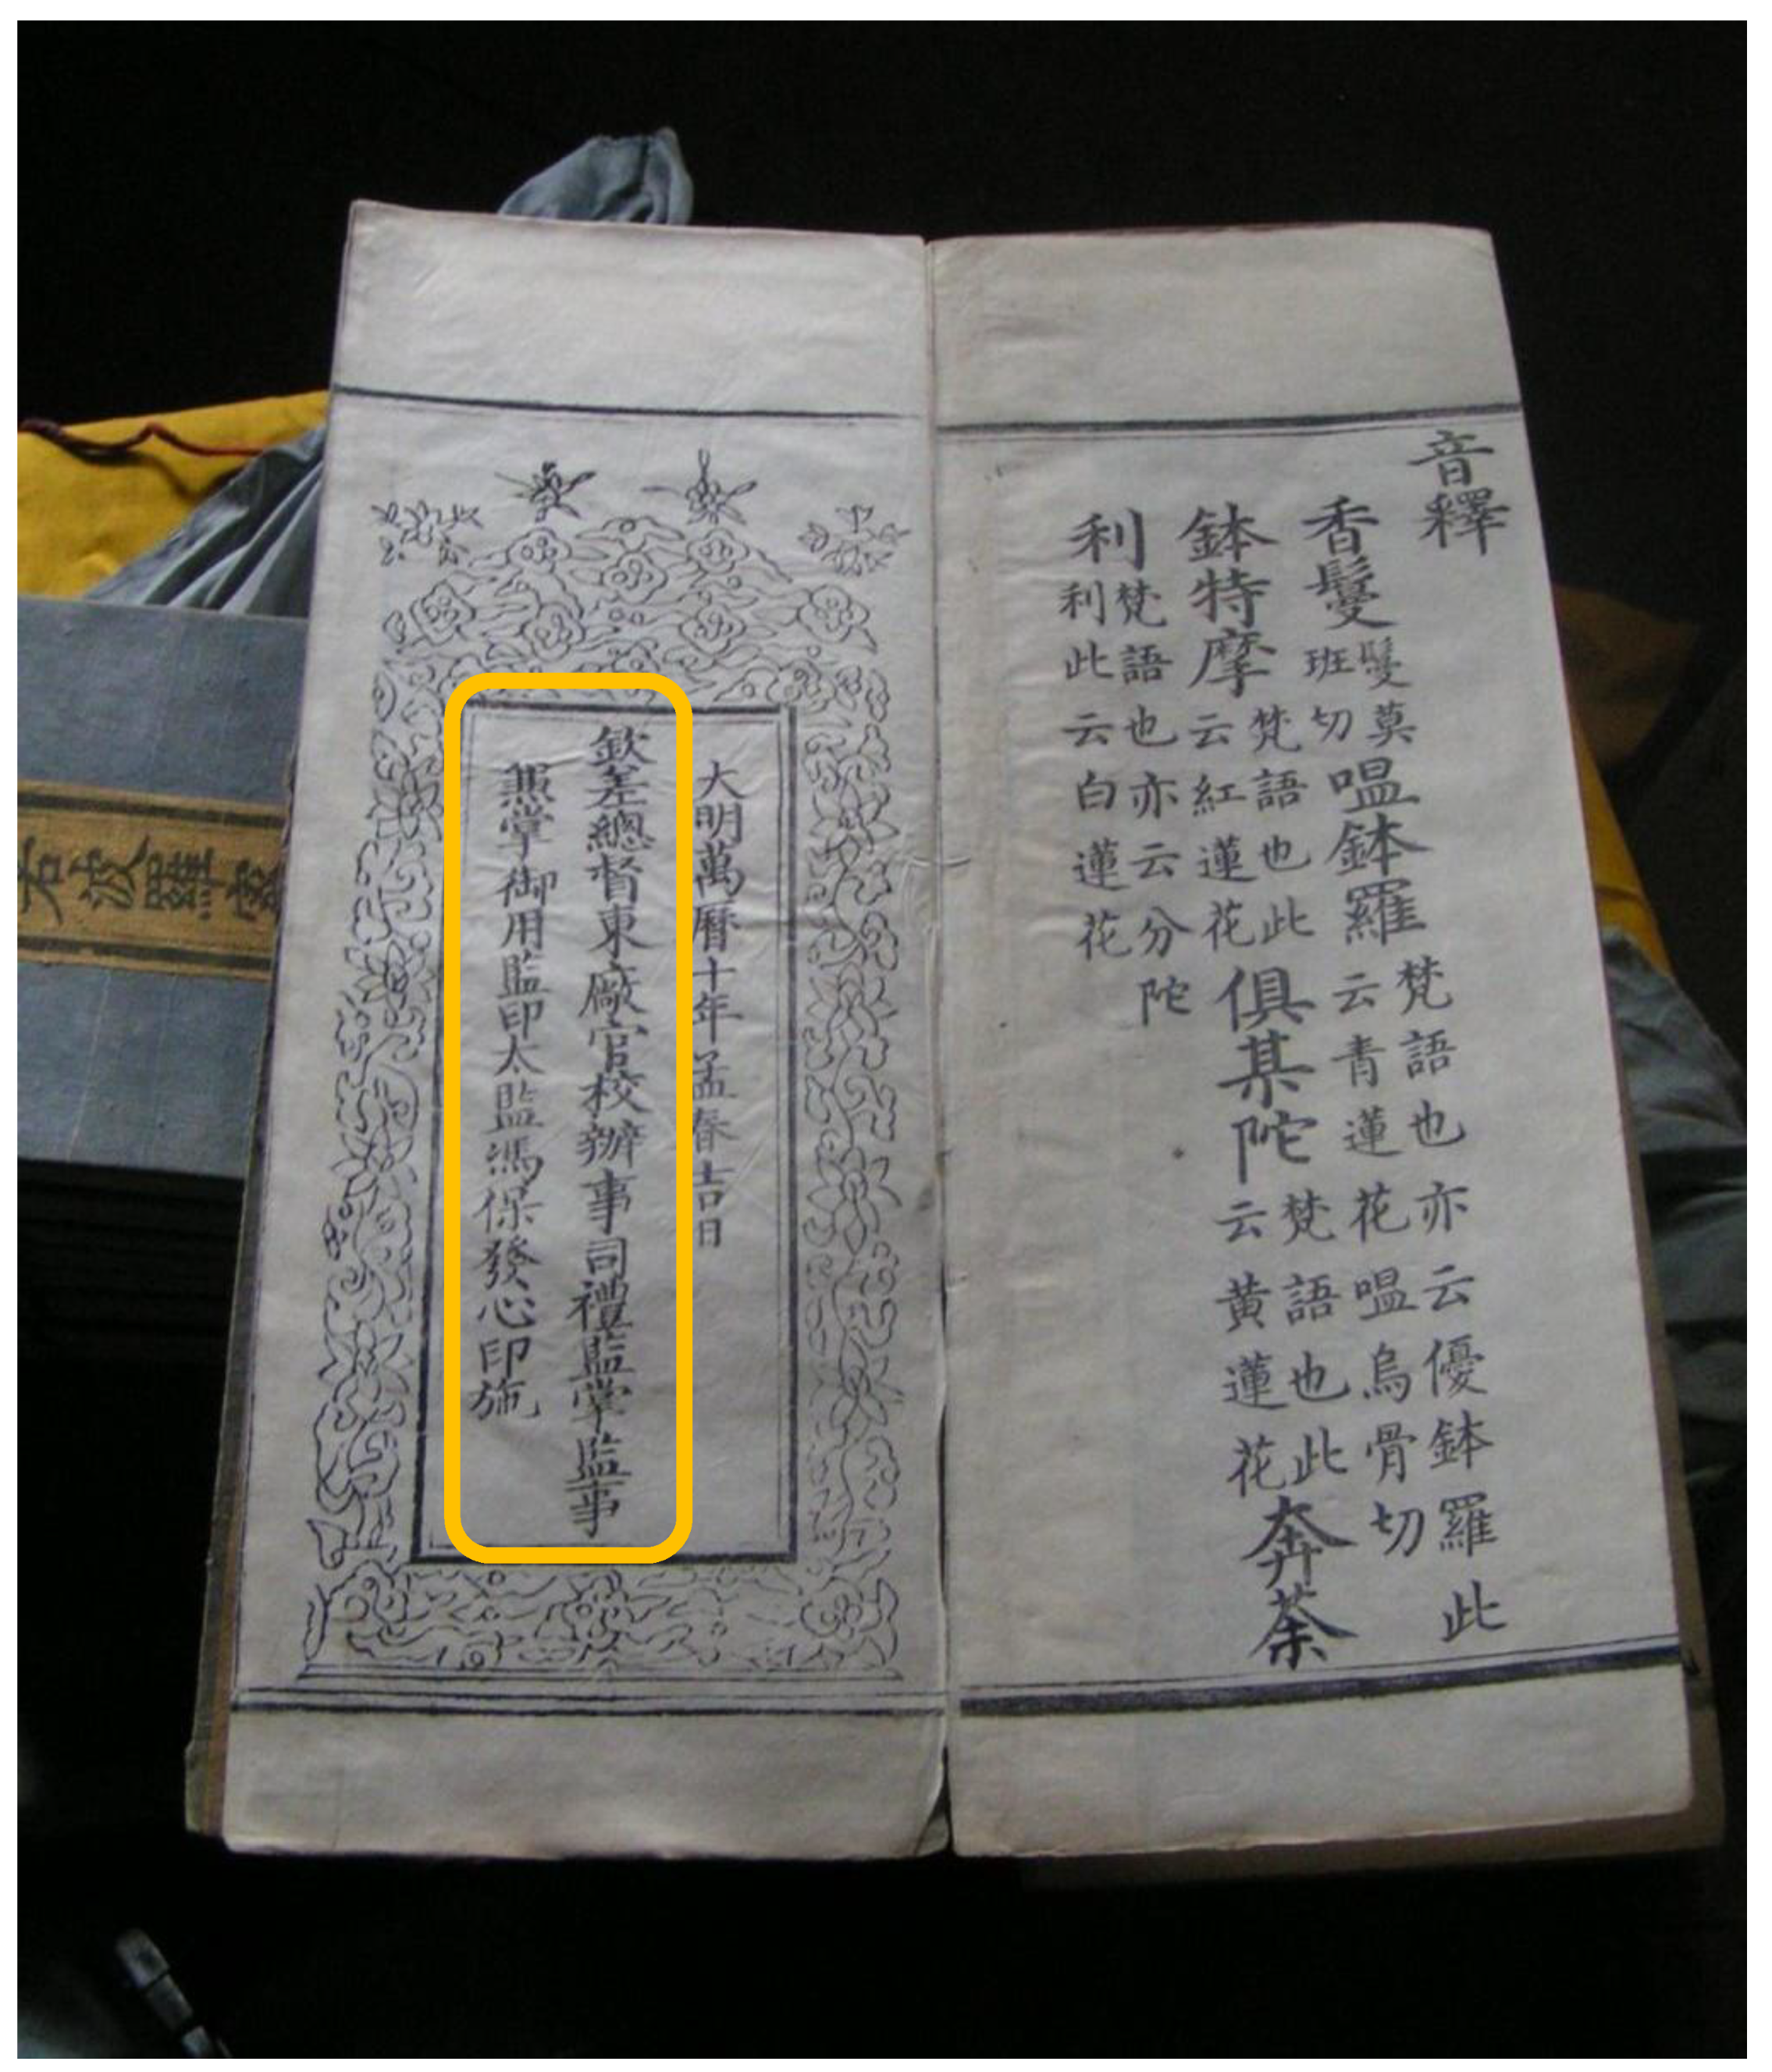 音釋
香鬘鬘莫班切嗢鉢羅梵語也亦云優鉢羅此云青蓮花嗢烏骨切
鉢特摩梵語也此云紅蓮花俱某陀梵語也此云黄蓮花奔荼
利梵語也亦云分陀利此云白蓮花
大明萬曆十年孟春吉日
欽差總督東廠官校辦事司禮監掌監事
兼掌御用監印太監馮保發心印施
若波羅蜜